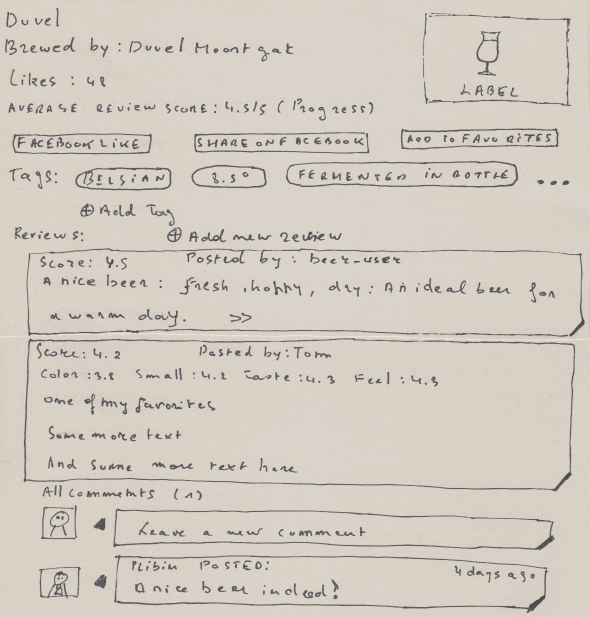 Duvel
Brewed by : Duvel Moortgat
Likes : 48
AVERAGE REVIEW SCORE: 4.5/5 (Progress)
LABEL
FACEBOOK LIKE
SHARE ON FACEBOOK
ADD TO FAVORITES
Tags: BELGIAN 8.5° FERMENTED IN BOTTLE ...
⊕ Add Tag
Reviews: ⊕ Add new review
Score: 4.5 Posted by : beer-user
A nice beer : fresh, hoppy, dry : An ideal beer for
a warm day. >>
Score: 4.2 Posted by: Tom
Color :3.8 Small :4.2 Taste :4.3 Feel : 4.3
one of my favorites
Some more text
And some more text here
All comments (1)
Leave a new comment
Plibin POSTED: 4 days ago
A nice beer indeed!